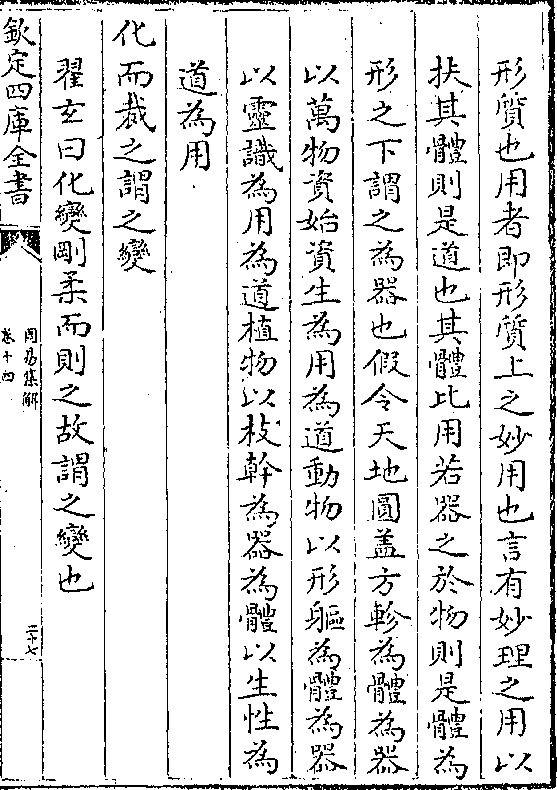 形質也用者即形質上之妙用也言有妙理之用以
扶其體則是道也其體比用若器之於物則是體為
形之下謂之為器也假令天地圓盖方軫為體為器
以萬物資始資生為用為道動物以形軀為體為器
以靈識為用為道植物以枝幹為器為體以生性為
道為用
化而裁之謂之變
翟玄曰化變剛柔而則之故謂之變也
欽定四庫全書
周易集解
卷十四
三十七